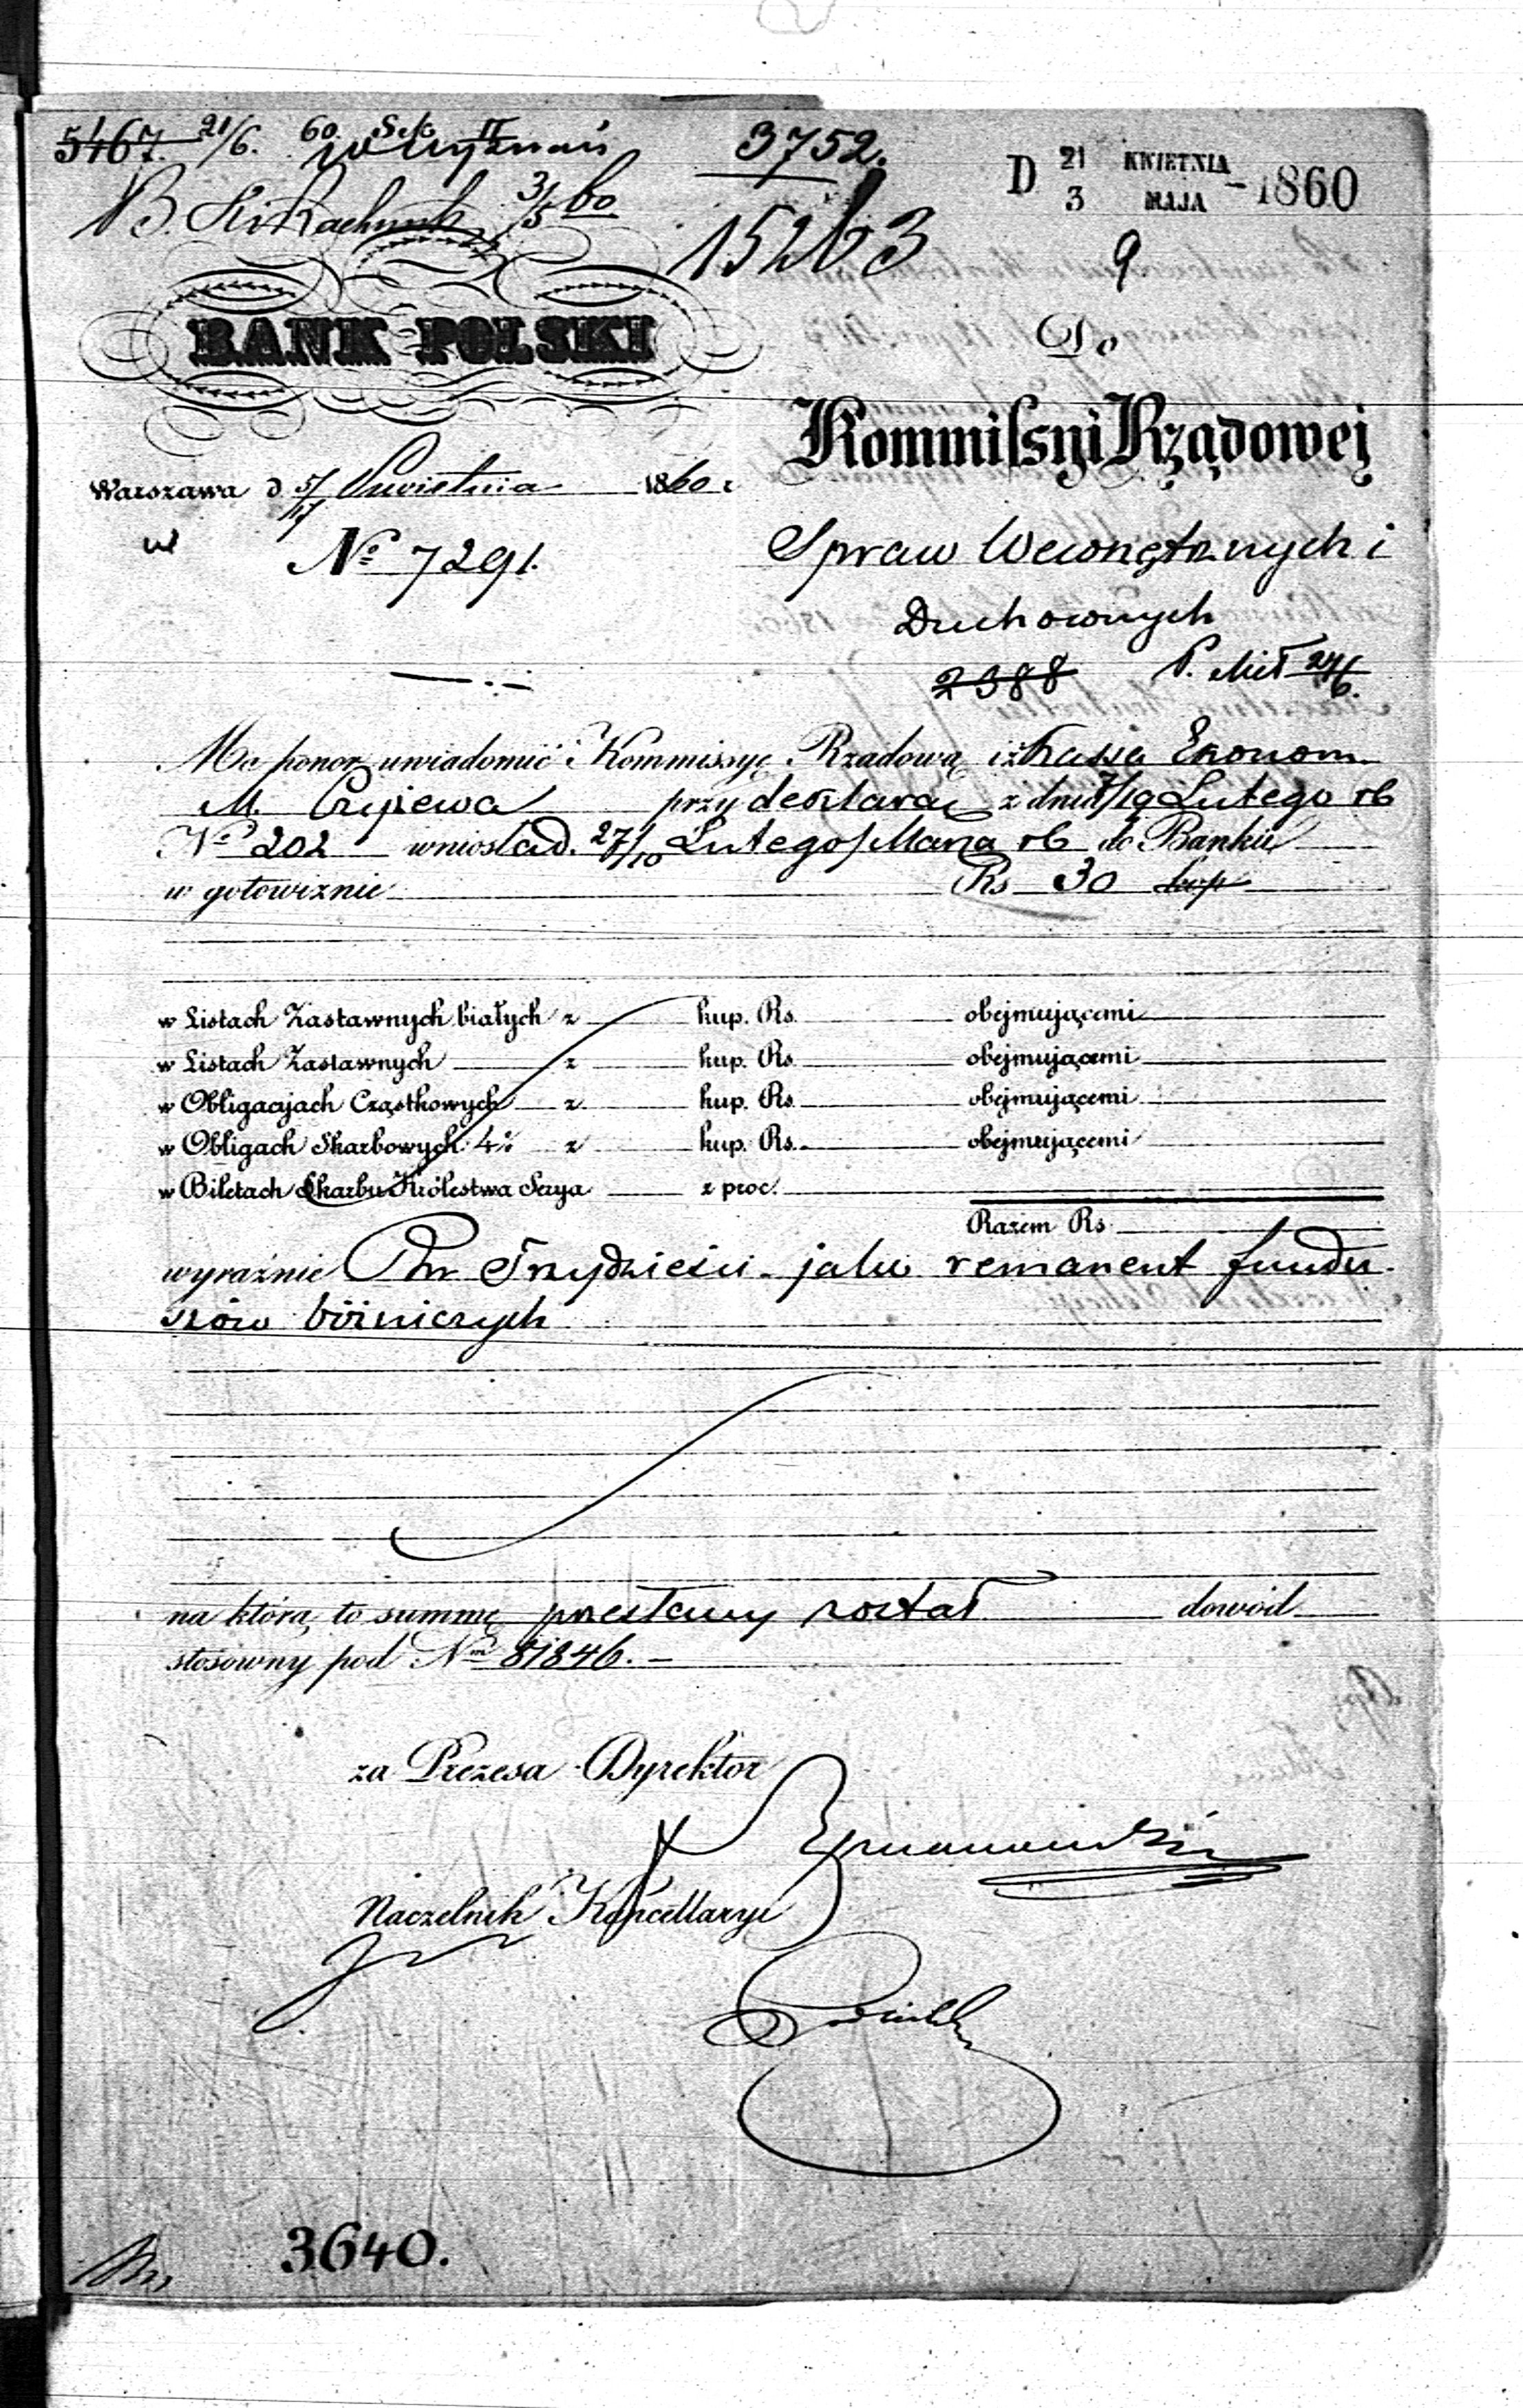 5467. 21/6. 60 Sek. II 3752.
Wyznań
D 21 KWIETNIA
3 MAJA - 1860
B. Sk Rachunk 3/5 60 15263
9
BANK POLSKI
Do
Kommissyi Rządowej
Warszawa d 5/17 Kwietnia 1860 r
No 7291.
Spraw Wewnętrznych i
Duchownych
2388
Ma honor uwiadomić Kommissyę Rządową iż Kassa Ekonom.
M. Czyżewa przy deklarac z dnia 7/19 Lutego rb
No 202 wniosła d. 27/10 Lutego/Marca rb do Banku
w gotowiznie Rs 30 kop
w Listach Zastawnych białych z kup. Rs. obejmującemi
w Listach Zastawnych z kup. Rs. obejmującemi
w Obligacjach Cząstkowych z kup. Rs. obejmującemi
w Obligach Skarbowych 4% z kup. Rs. obejmującemi
w Biletach Skarbu Królestwa Serya z proc.
Razem Rs
wyraźnie Rsr Trzydzieści jako remanent fundu-
szów bóżniczych
na którą to summę przesłany został dowód
stosowny pod Nm 81846.
za Prezesa Dyrektor
Naczelnik Kancellaryi
3640.